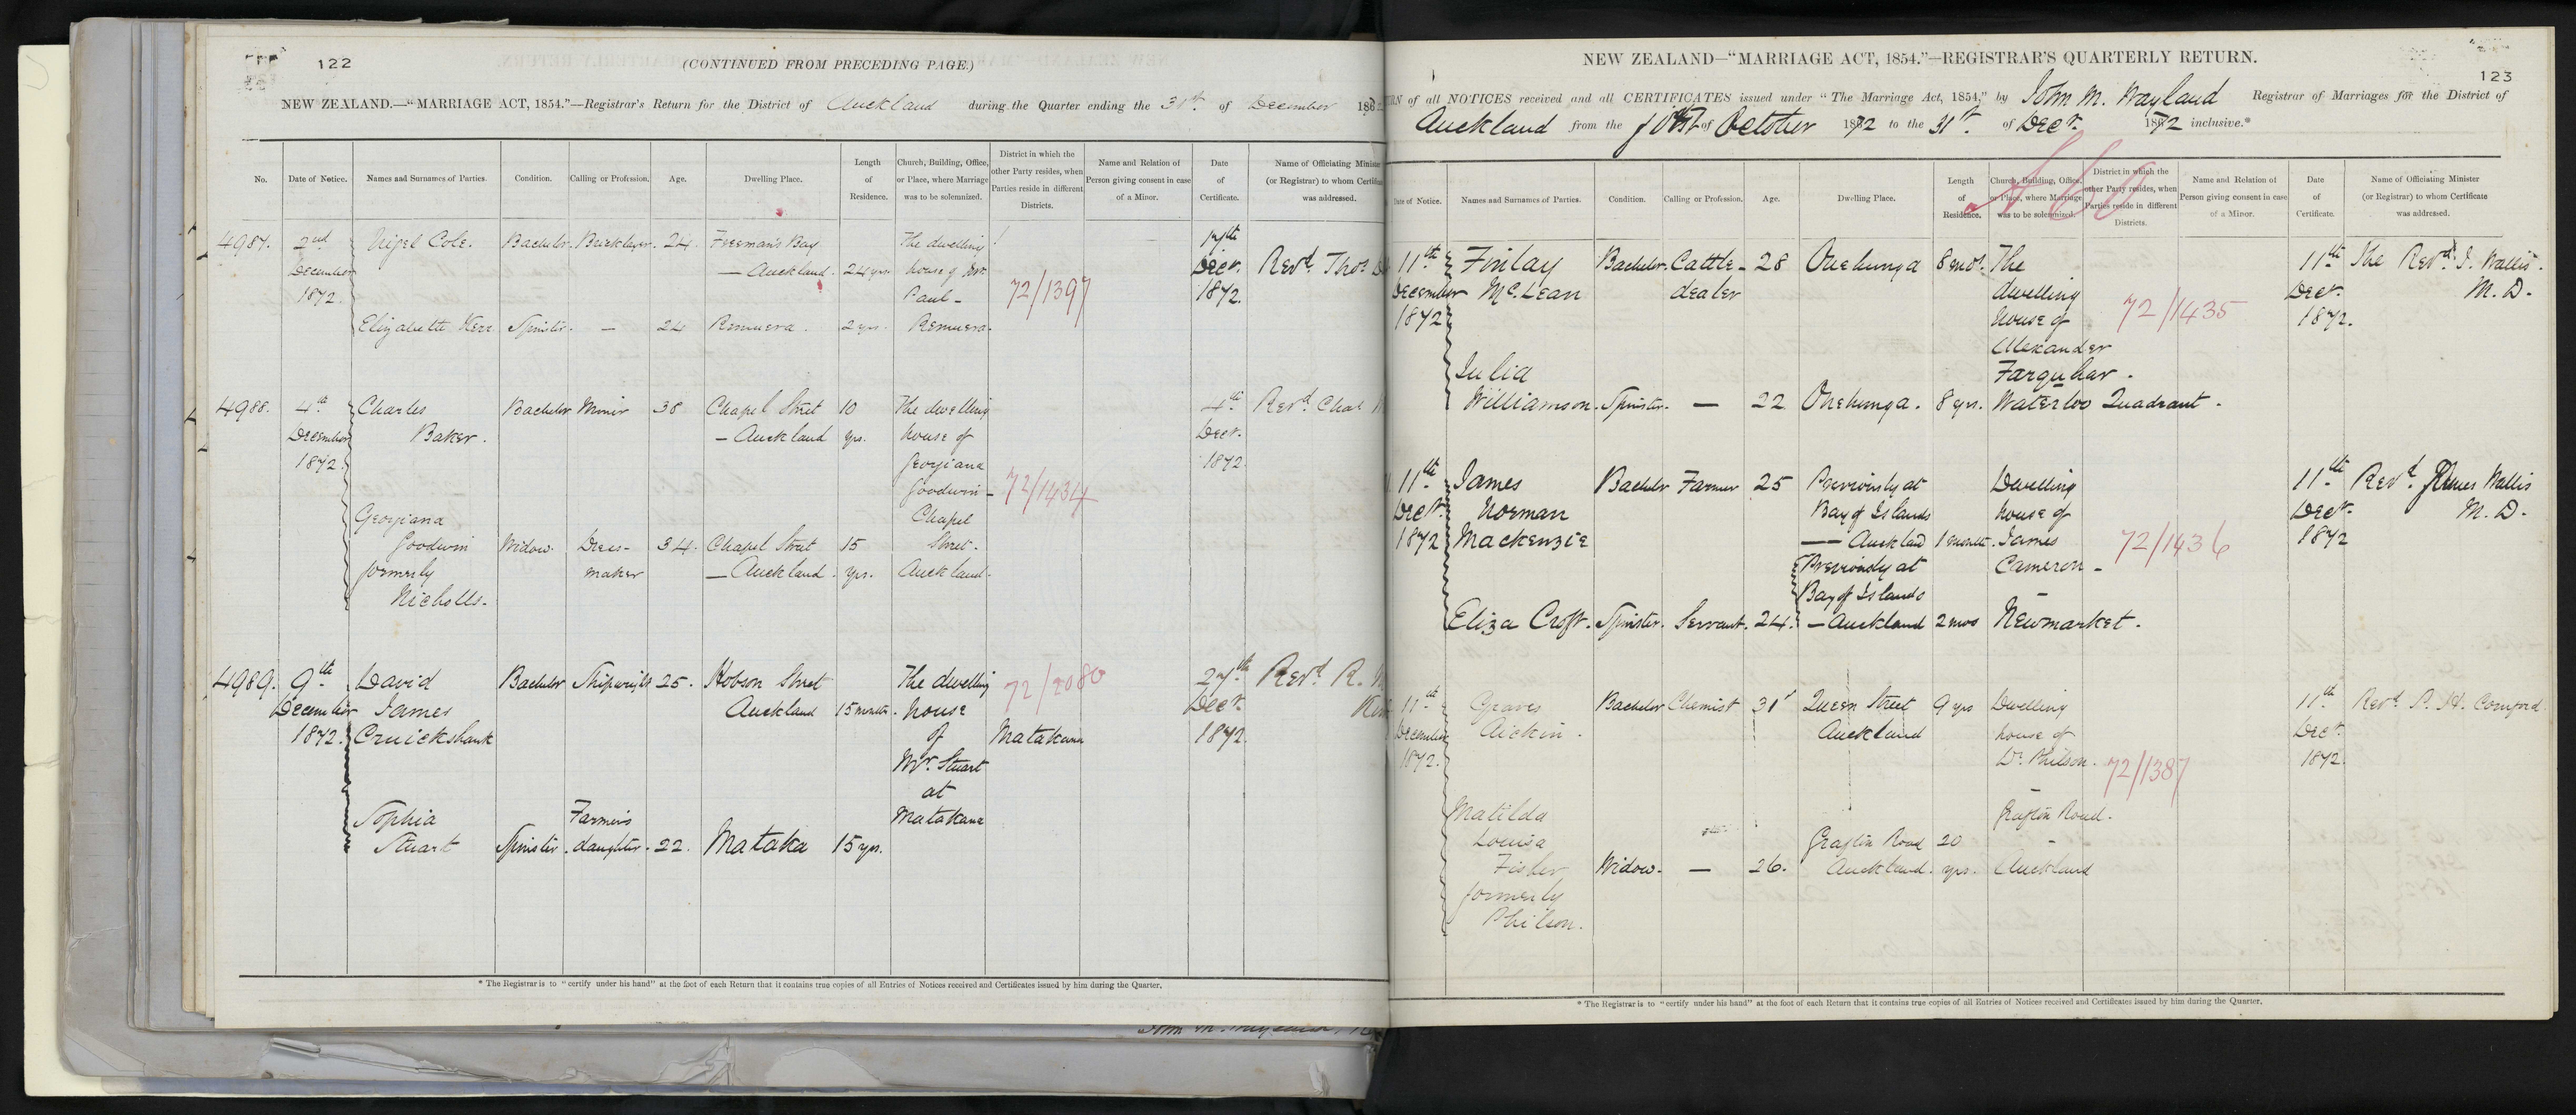 122
(CONTINUED FROM PRECEDING PAGE.)
NEW ZEALAND.—"MARRIAGE ACT, 1854."—Registrar's Return for the District of Auckland during the Quarter ending the 31st of December 186
No. Date of Notice. Names and Surnames of Parties. Condition. Calling or Profession. Age. Dwelling Place. Length of Residence. Church, Building, Office, or Place, where Marriage was to be solemnized. District in which the other Party resides, when Parties reside in different Districts. Name and Relation of Person giving consent in case of a Minor. Date of Certificate. Name of Officiating Minister (or Registrar) to whom Certificate was addressed.
4987. 2nd Nigel Cole. Bachelor. Bricklayer. 24. Freeman's Bay The dwelling 17th
December — Auckland. 24 yrs. house of Mr. Decr. Revd. Thos
1872. Paul - 72/1397 1872.
Elizabeth Kerr. Spinster. — 24 Remuera. 2 yrs. Remuera.
4988. 4th Charles Bachelor Miner 38 Chapel Street 10 The dwelling 4th Revd. Chas
December Baker. - Auckland yrs. house of Decr.
1872. Georgiana 1872
Goodwin - 72/1434
Georgiana Chapel
Goodwin Widow. Dress- 34. Chapel Street 15 Street.
formerly maker — Auckland. yrs. Auckland.
Nicholls.
4989. 9th David Bachelor Shipwright 25. Hobson Street The dwelling 72/2080 27th Revd. R.
December James Auckland 15 months. house Decr.
1872. Cruickshank of Matakana 1872.
Mr. Stuart
at
Sophia Farmers Matakana
Stuart Spinster. daughter. 22. Mataka 15 yrs.
* The Registrar is to "certify under his hand" at the foot of each Return that it contains true copies of all Entries of Notices received and Certificates issued by him during the Quarter.
NEW ZEALAND—"MARRIAGE ACT, 1854."—REGISTRAR'S QUARTERLY RETURN.
123
RN of all NOTICES received and all CERTIFICATES issued under "The Marriage Act, 1854," by John M. Wayland Registrar of Marriages for the District of
Auckland from the of October 1872 to the 31st of Decr. 1872 inclusive.*
Date of Notice. Names and Surnames of Parties. Condition. Calling or Profession. Age. Dwelling Place. Length of Residence. Church, Building, Office, or Place, where Marriage was to be solemnized. District in which the other Party resides, when Parties reside in different Districts. Name and Relation of Person giving consent in case of a Minor. Date of Certificate. Name of Officiating Minister (or Registrar) to whom Certificate was addressed.
11th Finlay Bachelor. Cattle- 28 Onehunga 8 mos. The 11th The Revd. J. Wallis.
December McLean dealer dwelling Decr. M. D.
1872 house of 72/1435 1872.
Alexander
Julia Farquhar.
Williamson. Spinster. — 22 Onehunga. 8 yrs. Waterloo Quadrant.
11th James Bachelor Farmer 25 Previously at Dwelling 11th Revd. James Wallis
Decr. Norman Bay of Islands house of Decr. M. D.
1872 Mackenzie — Auckland 1 month. James 72/1436 1872
Previously at Cameron -
Bay of Islands
Eliza Croft. Spinster. Servant. 24. - Auckland 2 mos Newmarket.
11th Graves Bachelor Chemist 31 Queen Street 9 yrs Dwelling 11th Revd. P. H. Cornford
December Aickin. Auckland house of Decr.
1872. Dr. Philson. 72/1387 1872.
Matilda Grafton Road.
Louisa Grafton Road 20
Fisher Widow. — 26. Auckland. yrs. Auckland
formerly
Philson.
* The Registrar is to "certify under his hand" at the foot of each Return that it contains true copies of all Entries of Notices received and Certificates issued by him during the Quarter.